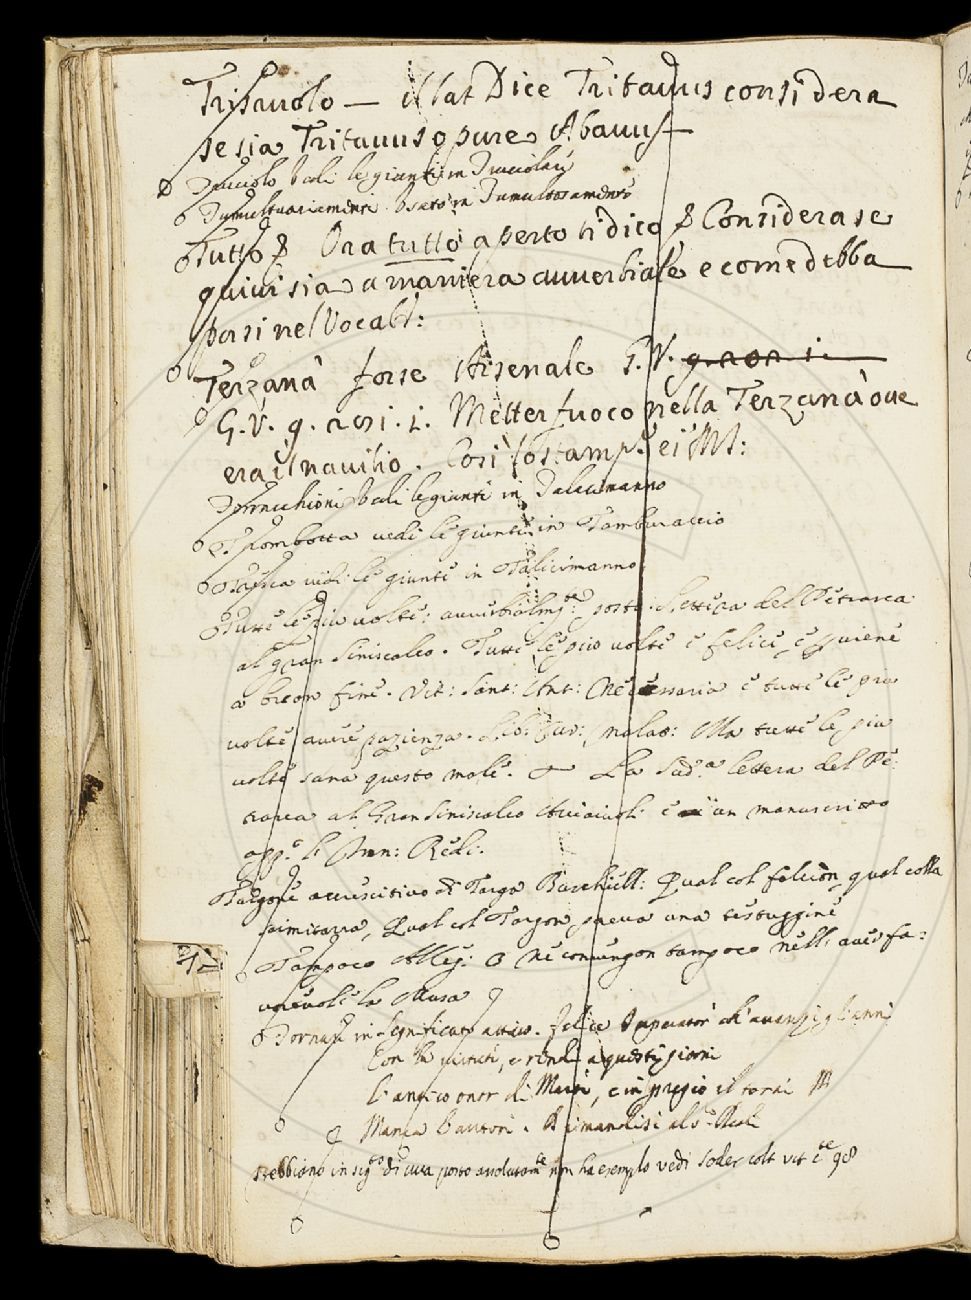 Trisavolo — il lat Dice Tritavus considera
se sia Tritavus o pure Abavus —
vedi le giunte in
Tumultuariamente Usato in Tumultuosamente
Tutto & Ora tutto aperto ti dico & Considera se
quivi sia a maniera avverbiale e come debba
porsi nel Vocab:
Terzanà forse Arsenale G. V. g. non i
G. V. g. non. i. Metter fuoco nella Terzanà ove
era il navilio. Cosi lo stamp.º e i Ms:
vedi le giunte in Talacimanno
Trombotta vedi le giunte in Tamburaccio
vedi le giunte in Talacimanno
Tutte le più volte: avverbialmte posto. Lettera del Petrarca
al Gran Siniscalco. Tutte le più volte è felice, e perviene
a buon fine. Vit: Sant: Ant: Necessaria è tutte le più
volte avere pazienza. Lib: Cur: malat: Ma tutte le più
volte sana questo male. La Sud.ª lettera del Pe:
trarca al Gran Siniscalco Acciaiuoli è in un manuscritto
app.º il Redi.
Targone accrescitivo di Targa Burchiell: Qual col falcion, qual colla
scimitarra, Qual col Targon pareva una testuggine
Tampoco Alleg: O ne tampoco nell: fa:
vorevole la Musa
Tornare in significato attivo. Felice Imperator ch'avanzi gli anni
Con la virtuti, e rendi a questi giorni
L'antico onor di Marte, e in pregio il torni
Manca l'autore.
Trebbiano in sigto di uva posto assolutamte non ha esemplo vedi Soder colt vit cte 98